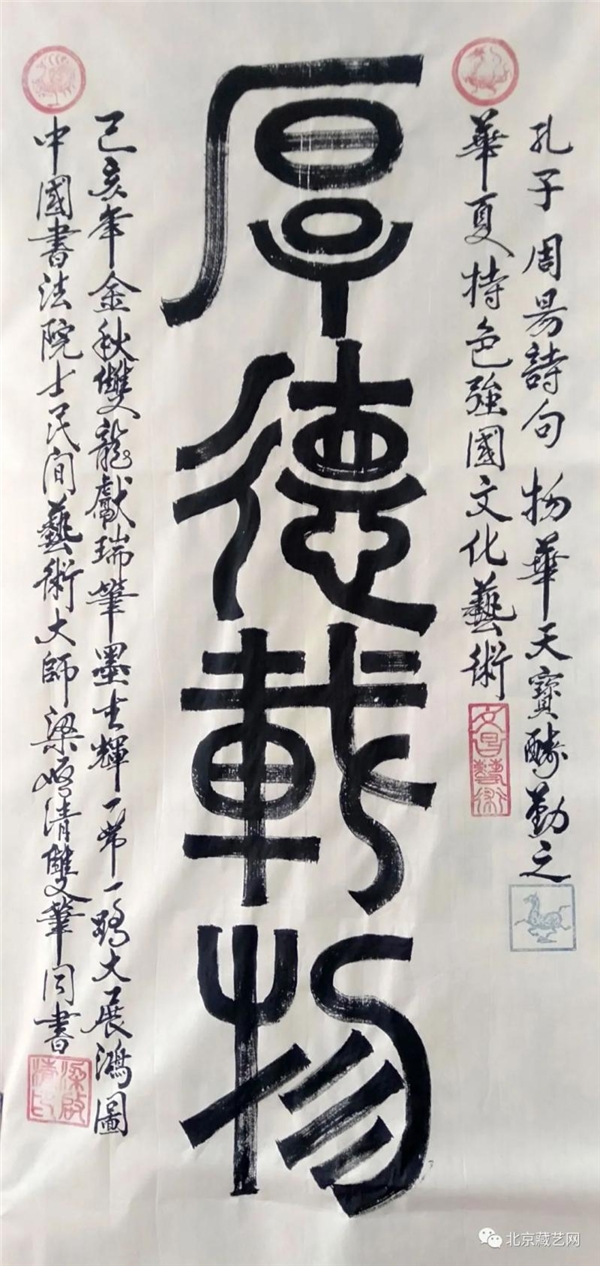 孔子周易詩句 物華天寶酬勤之
華夏特色強國文化藝術
文昌藝術
厚德載物
己亥年金秋雙龍獻瑞筆墨生輝一帶一路大展鴻圖
中國書法院士民間藝術大師梁啓清雙筆同書
梁啟清印
北京藏艺网